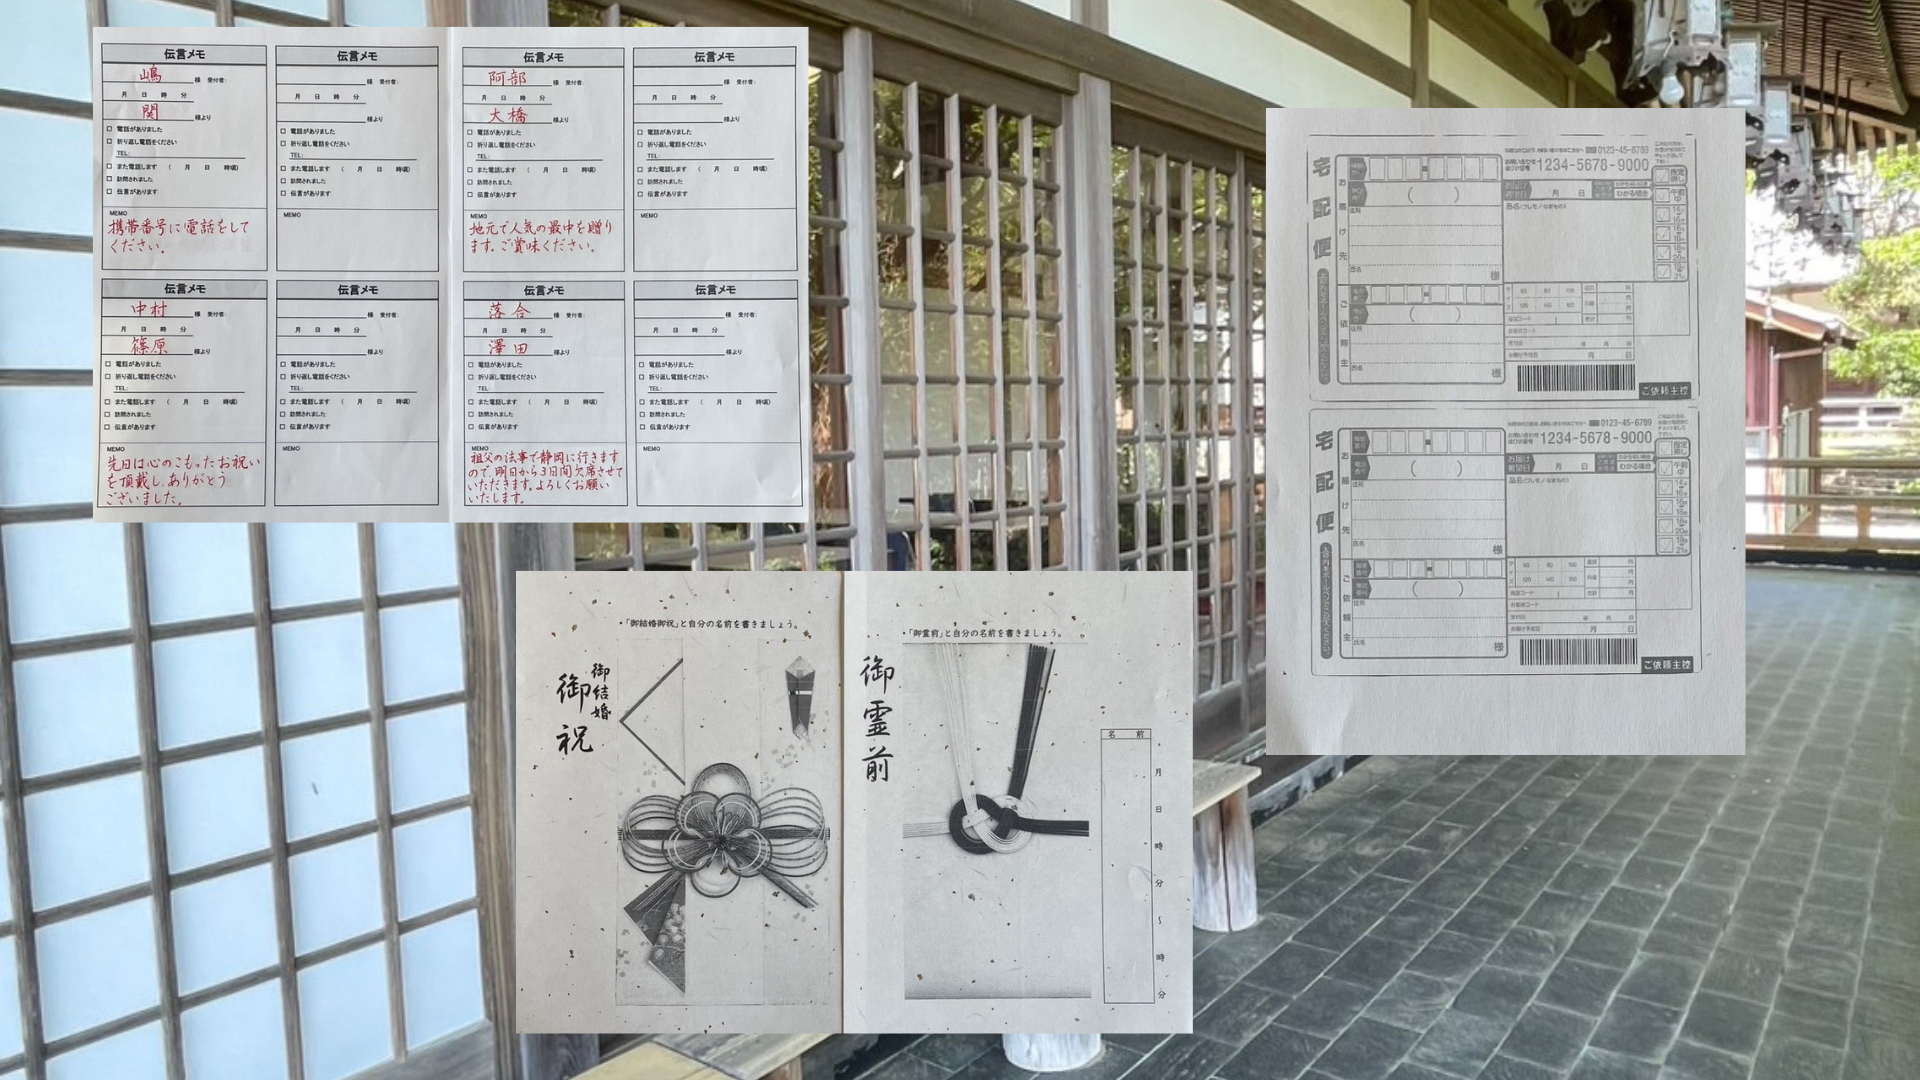 伝言メモ
嶋 様 受付者:
月 日 時 分
関 様より
□ 電話がありました
□ 折り返し電話をください
TEL:
□ また電話します ( 月 日 時頃)
□ 訪問されました
□ 伝言があります
MEMO
携帯番号に電話をして
ください。
伝言メモ
様 受付者:
月 日 時 分
様より
□ 電話がありました
□ 折り返し電話をください
TEL:
□ また電話します ( 月 日 時頃)
□ 訪問されました
□ 伝言があります
MEMO
伝言メモ
阿部 様 受付者:
月 日 時 分
大橋 様より
□ 電話がありました
□ 折り返し電話をください
TEL:
□ また電話します ( 月 日 時頃)
□ 訪問されました
□ 伝言があります
MEMO
地元で人気の最中を贈り
ます。ご賞味ください。
伝言メモ
様 受付者:
月 日 時 分
様より
□ 電話がありました
□ 折り返し電話をください
TEL:
□ また電話します ( 月 日 時頃)
□ 訪問されました
□ 伝言があります
MEMO
伝言メモ
中村 様 受付者:
月 日 時 分
篠原 様より
□ 電話がありました
□ 折り返し電話をください
TEL:
□ また電話します ( 月 日 時頃)
□ 訪問されました
□ 伝言があります
MEMO
先日は心のこもったお祝い
を頂戴し、ありがとう
ございました。
伝言メモ
様 受付者:
月 日 時 分
様より
□ 電話がありました
□ 折り返し電話をください
TEL:
□ また電話します ( 月 日 時頃)
□ 訪問されました
□ 伝言があります
MEMO
伝言メモ
落合 様 受付者:
月 日 時 分
澤田 様より
□ 電話がありました
□ 折り返し電話をください
TEL:
□ また電話します ( 月 日 時頃)
□ 訪問されました
□ 伝言があります
MEMO
祖父の法事で静岡に行きます
ので、明日から3日間欠席させて
いただきます。よろしくお願い
いたします。
伝言メモ
様 受付者:
月 日 時 分
様より
□ 電話がありました
□ 折り返し電話をください
TEL:
□ また電話します ( 月 日 時頃)
□ 訪問されました
□ 伝言があります
MEMO
・「御結婚御祝」と自分の名前を書きましょう。
御結婚
御祝
・「御霊前」と自分の名前を書きましょう。
御霊前
名前
月 日 時 分 〜 時 分
宅配便
0123-45-6789
お問い合わせ
1234-5678-9000
お届け
希望日
月 日
わかる場合
指定
無し
午前
中
お届け先
住所
品名(ワレモノ・なまもの)
氏名
様
ご依頼主
住所
氏名
様
60 80 100
120 140 160
お客様コード
受付日
お届け予定日
月 日
ご依頼主控
宅配便
0123-45-6789
お問い合わせ
1234-5678-9000
お届け
希望日
月 日
わかる場合
指定
無し
午前
中
お届け先
住所
品名(ワレモノ・なまもの)
氏名
様
ご依頼主
住所
氏名
様
60 80 100
120 140 160
お客様コード
受付日
お届け予定日
月 日
ご依頼主控